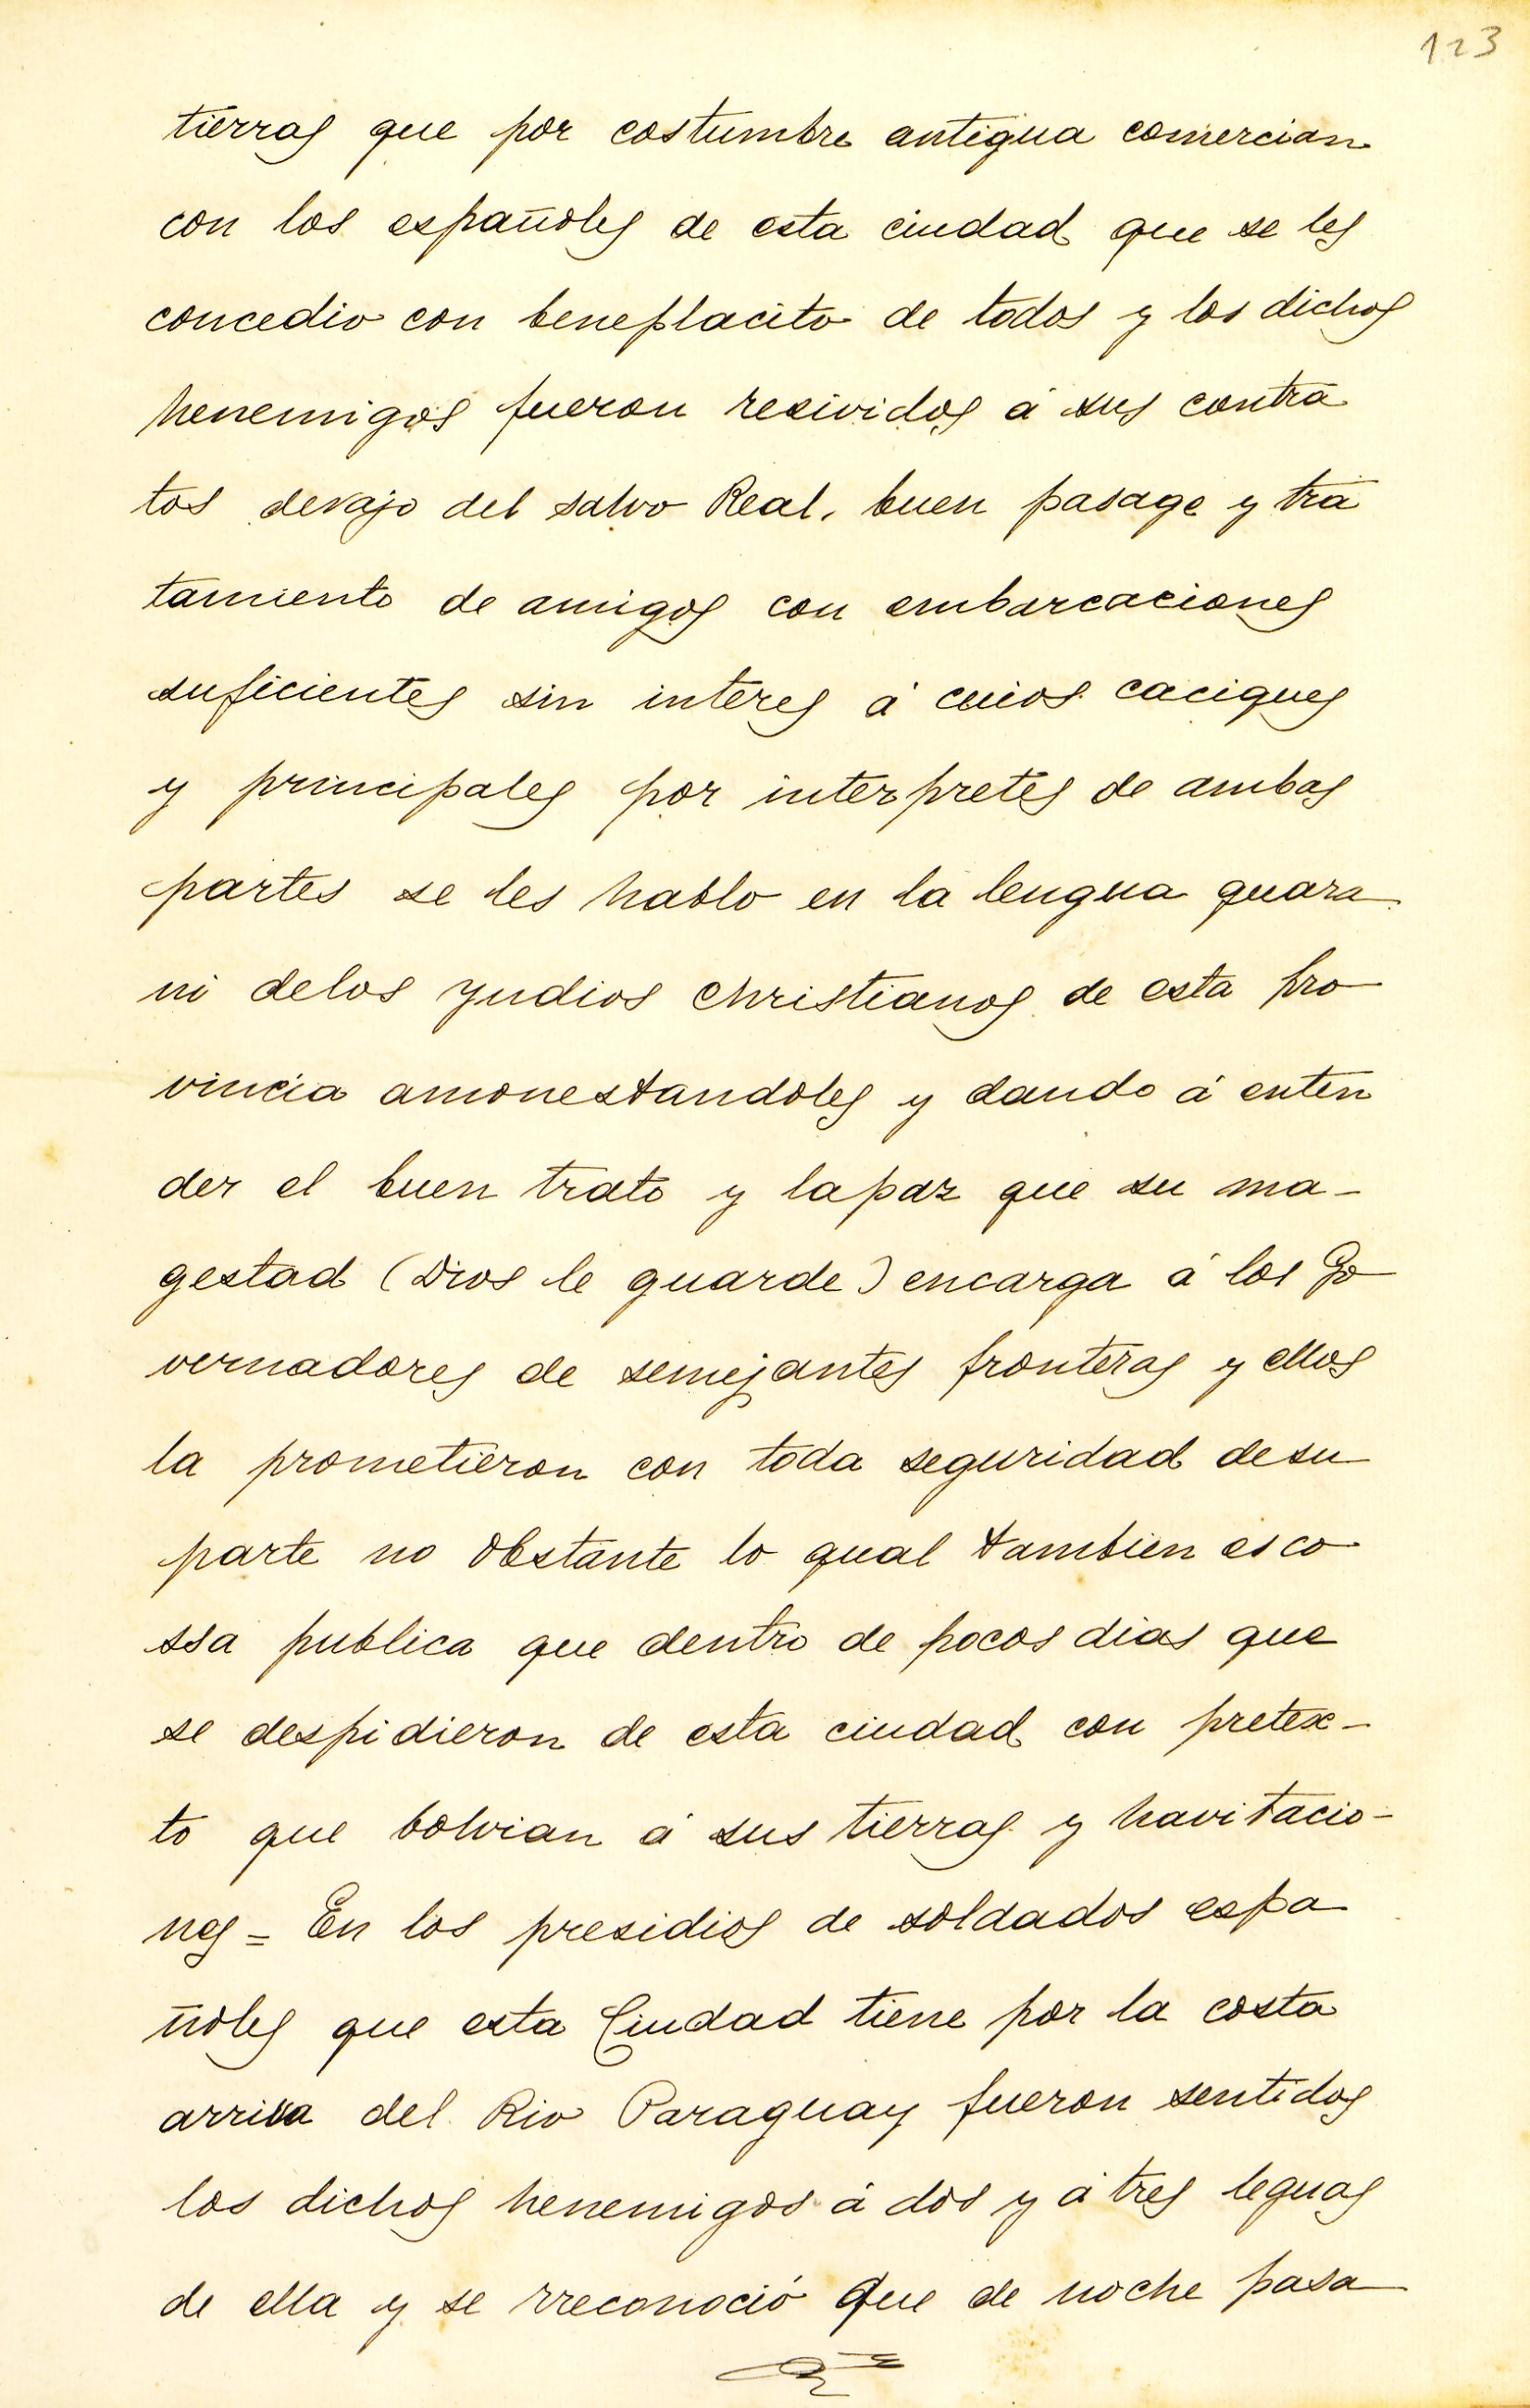 123
tierras que por costumbre antigua comercian
con los españoles de esta ciudad que se les
concedio con beneplacito de todos y los dichos
henemigos fueron resividos á sus contra
tos devajo del salvo Real, buen pasage y tra
tamiento de amigos con embarcaciones
suficientes sin interes á cuios caciques
y principales por interpretes de ambas
partes se les hablo en la lengua guara
ni delos yndios christianos de esta pro
vincia amonestandoles y dando á enten
der el buen trato y lapaz que su ma-
gestad (Dios le guarde) encarga á los Go
vernadores de semejantes fronteras y ellos
la prometieron con toda seguridad desu
parte no obstante lo qual tambien es co
ssa publica que dentro de pocos dias que
se despidieron de esta ciudad con pretex-
to que bolvian á sus tierras y havitacio-
nes = En los presidios de soldados espa
ñoles que esta Ciudad tiene por la costa
arriva del Rio Paraguay fueron sentidos
los dichos henemigos á dos y á tres leguas
de ella y se rreconoció que de noche pasa